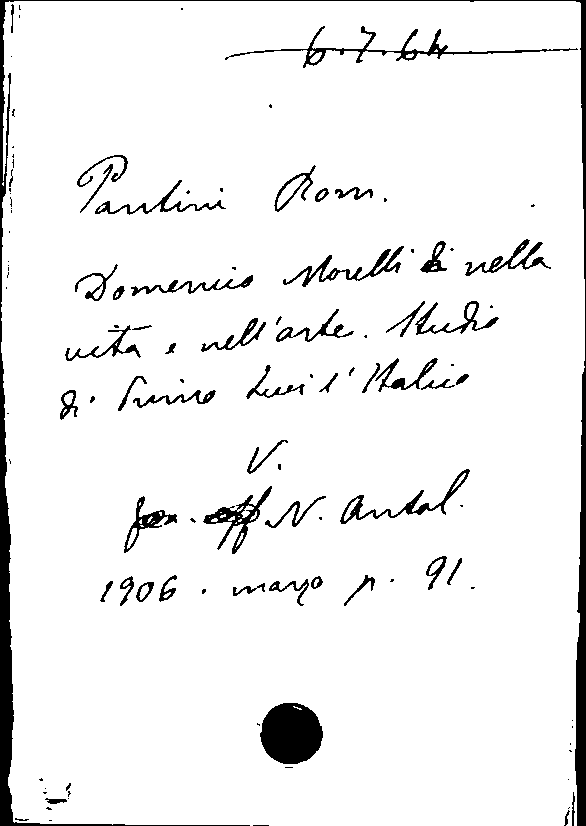 6.7.64
Pantini Rom.
Domenico Morelli nella
vita e nell'arte. Studio
di Primo Levi l'Italico
V.
N. Antol.
1906. marzo p. 91.